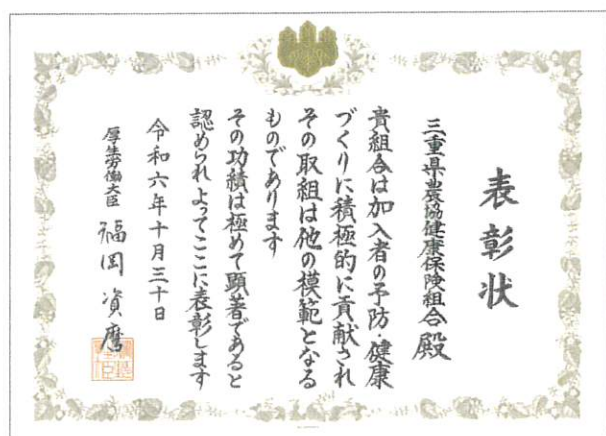 表彰状
三重県農協健康保険組合 殿
貴組合は加入者の予防・健康
づくりに積極的に貢献され
その取組は他の模範となる
ものであります
その功績は極めて顕著であると
認められよってここに表彰します
令和六年十月三十日
厚生労働大臣 福岡資麿